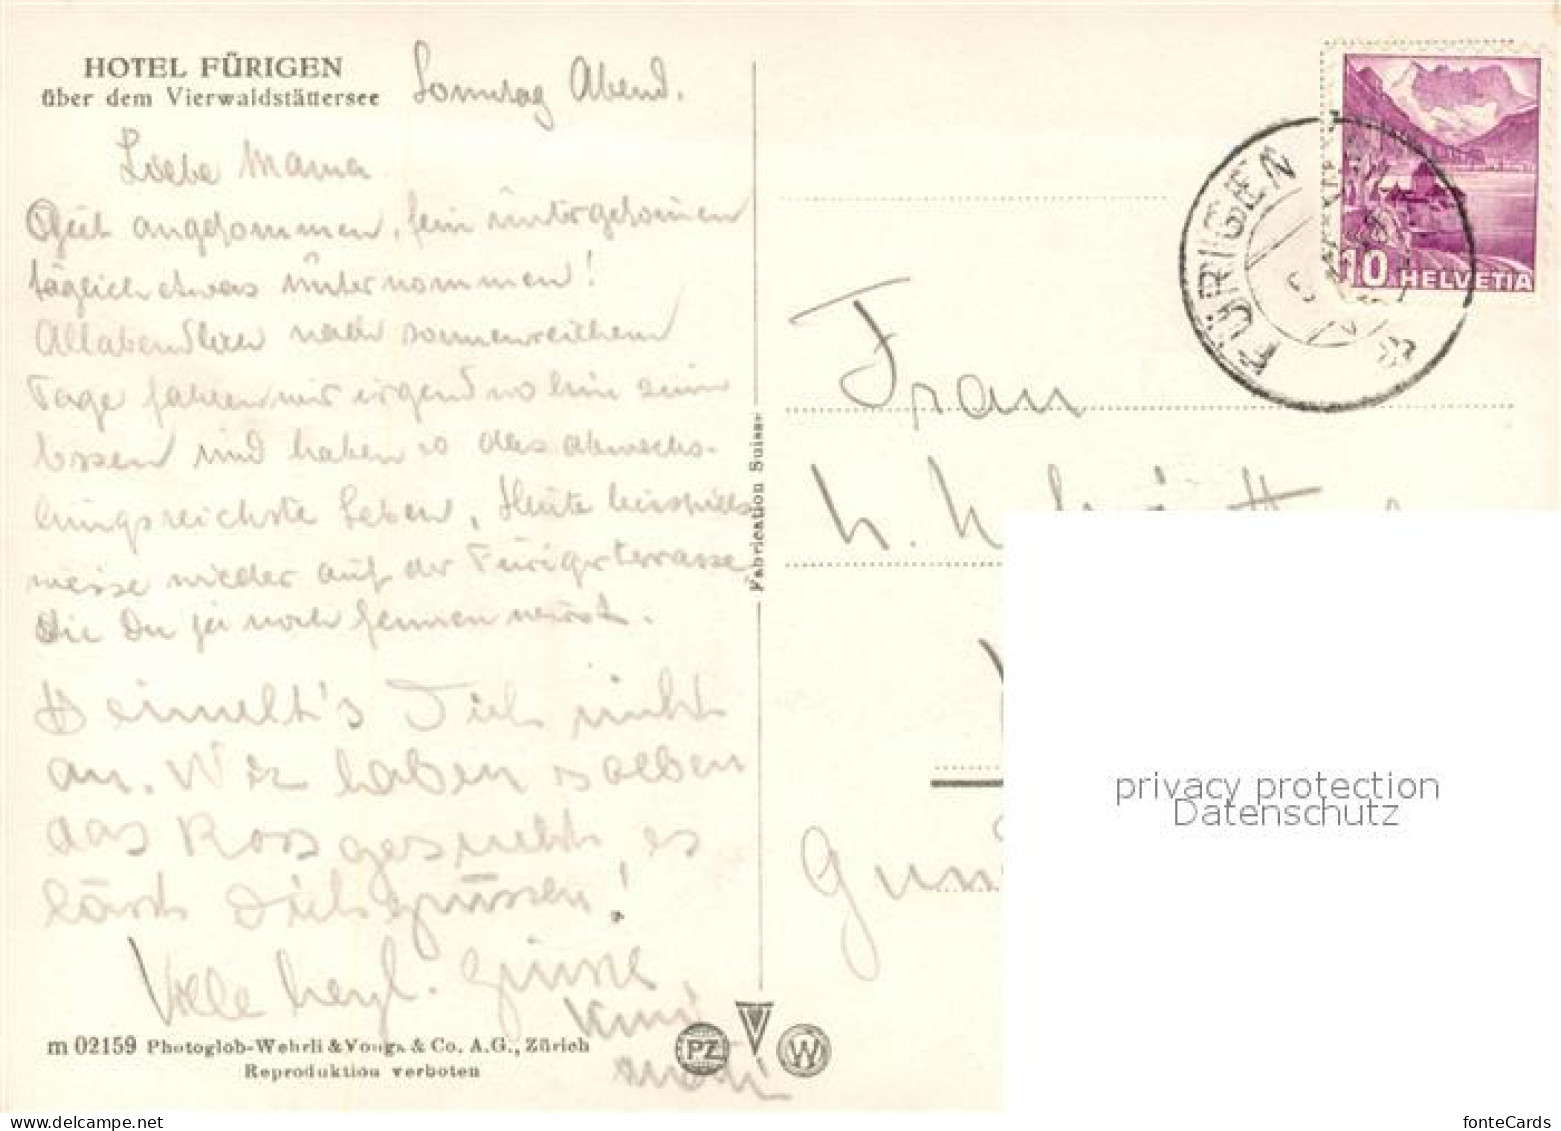 HOTEL FÜRIGEN
über dem Vierwaldstättersee
Sonntag Abend.
Liebe Mama
Gut angekommen, fein untergekommen
täglich etwas unternommen!
Allabendlich nach sonnenreichem
Tage fahren wir irgend wo hin zum
Essen und haben so das abwechs-
lungsreichste Leben. Heute beispiels
weise wieder auf der Fürigerterrasse,
die Du ja noch kennen wirst.
Heimelt's Dich nicht
an. Wir haben selben
das Ross gesucht, es
lässt Dich grüssen!
Viele herzl. Grüsse
m 02159 Photoglob-Wehrli & Vouga & Co. A.G., Zürich
Reproduktion verboten
Fabrication Suisse
PZ
W
FÜRIGEN
10 HELVETIA
Frau
privacy protection
Datenschutz
www.delcampe.net
fonteCards